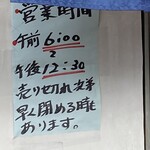 営業時間
午前6:00
〜
午後12:30
売り切れ次第
早く閉める時も
あります。